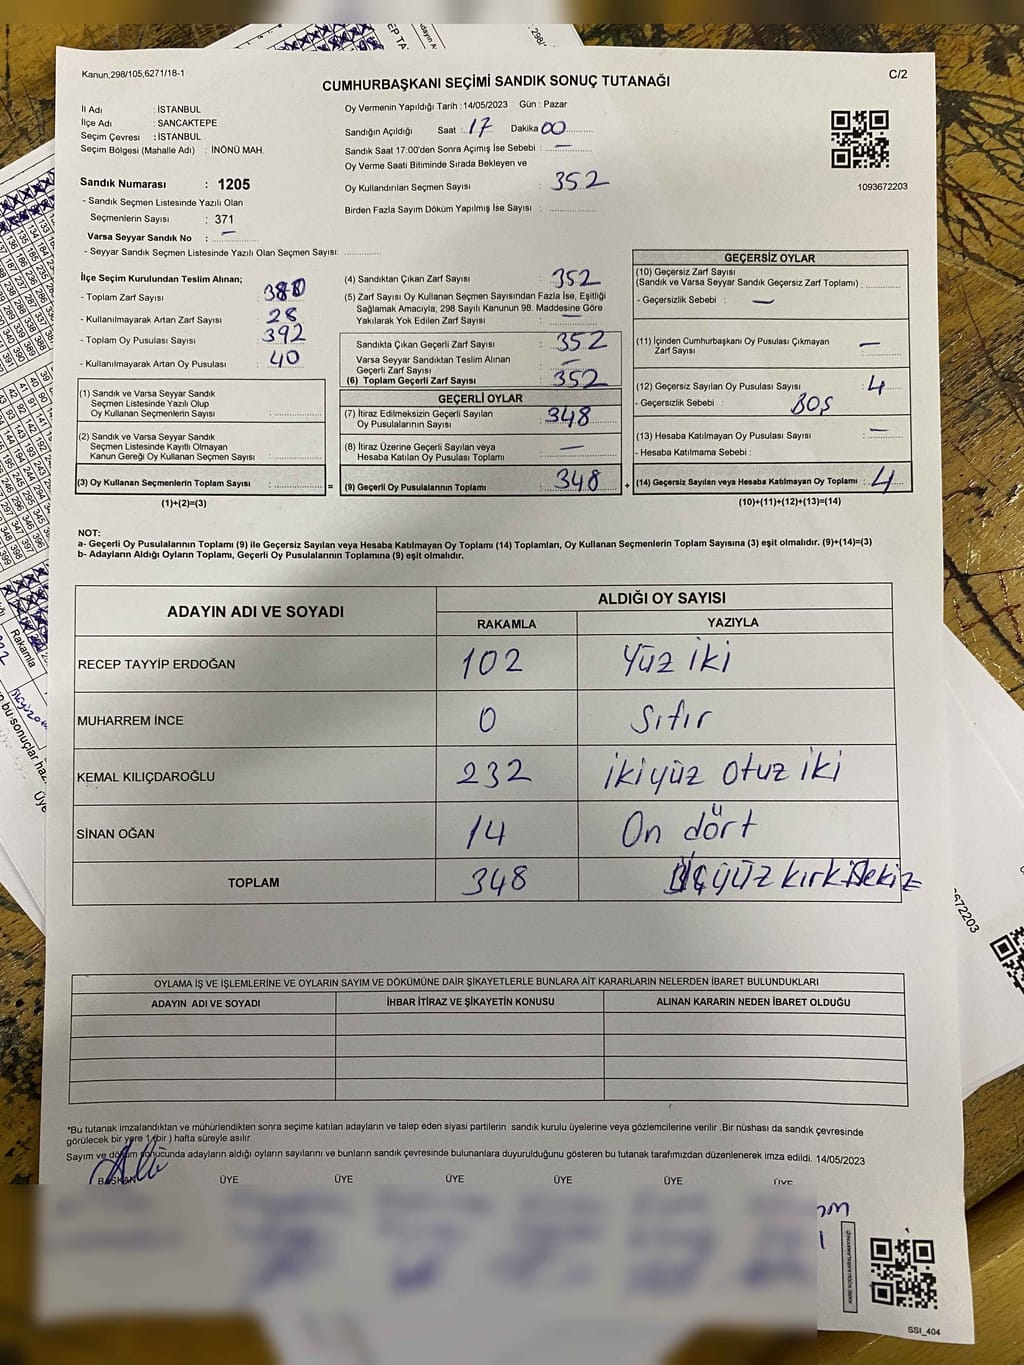 Kanun,298/105,6271/18-1
C/2
CUMHURBAŞKANI SEÇİMİ SANDIK SONUÇ TUTANAĞI
İl Adı : İSTANBUL
İlçe Adı : SANCAKTEPE
Seçim Çevresi : İSTANBUL
Seçim Bölgesi (Mahalle Adı) : İNÖNÜ MAH.
Sandık Numarası : 1205
- Sandık Seçmen Listesinde Yazılı Olan
Seçmenlerin Sayısı : 371
Varsa Seyyar Sandık No : –
- Seyyar Sandık Seçmen Listesinde Yazılı Olan Seçmen Sayısı: ............
Oy Vermenin Yapıldığı Tarih : 14/05/2023 Gün : Pazar
Sandığın Açıldığı Saat : 17 Dakika 00
Sandık Saat 17:00'den Sonra Açımış İse Sebebi : –
Oy Verme Saati Bitiminde Sırada Bekleyen ve
Oy Kullandırılan Seçmen Sayısı : 352
Birden Fazla Sayım Döküm Yapılmış İse Sayısı : ............
1093672203
İlçe Seçim Kurulundan Teslim Alınan;
- Toplam Zarf Sayısı : 380
- Kullanılmayarak Artan Zarf Sayısı : 28
- Toplam Oy Pusulası Sayısı : 392
- Kullanılmayarak Artan Oy Pusulası : 40
(1) Sandık ve Varsa Seyyar Sandık
Seçmen Listesinde Yazılı Olup
Oy Kullanan Seçmenlerin Sayısı : ............
(2) Sandık ve Varsa Seyyar Sandık
Seçmen Listesinde Kayıtlı Olmayan
Kanun Gereği Oy Kullanan Seçmen Sayısı : ............
(3) Oy Kullanan Seçmenlerin Toplam Sayısı : ............ =
(1)+(2)=(3)
(4) Sandıktan Çıkan Zarf Sayısı : 352
(5) Zarf Sayısı Oy Kullanan Seçmen Sayısından Fazla İse, Eşitliği
Sağlamak Amacıyla, 298 Sayılı Kanunun 98. Maddesine Göre
Yakılarak Yok Edilen Zarf Sayısı : –
Sandıkta Çıkan Geçerli Zarf Sayısı : 352
Varsa Seyyar Sandıktan Teslim Alınan
Geçerli Zarf Sayısı : –
(6) Toplam Geçerli Zarf Sayısı : 352
GEÇERLİ OYLAR
(7) İtiraz Edilmeksizin Geçerli Sayılan
Oy Pusulalarının Sayısı : 348
(8) İtiraz Üzerine Geçerli Sayılan veya
Hesaba Katılan Oy Pusulası Toplamı : –
(9) Geçerli Oy Pusulalarının Toplamı : 348 +
GEÇERSİZ OYLAR
(10) Geçersiz Zarf Sayısı
(Sandık ve Varsa Seyyar Sandık Geçersiz Zarf Toplamı) : ............
- Geçersizlik Sebebi : –
(11) İçinden Cumhurbaşkanı Oy Pusulası Çıkmayan
Zarf Sayısı : –
(12) Geçersiz Sayılan Oy Pusulası Sayısı : 4
- Geçersizlik Sebebi : BOŞ
(13) Hesaba Katılmayan Oy Pusulası Sayısı : –
- Hesaba Katılmama Sebebi :
(14) Geçersiz Sayılan veya Hesaba Katılmayan Oy Toplamı : 4
(10)+(11)+(12)+(13)=(14)
NOT:
a- Geçerli Oy Pusulalarının Toplamı (9) ile Geçersiz Sayılan veya Hesaba Katılmayan Oy Toplamı (14) Toplamları, Oy Kullanan Seçmenlerin Toplam Sayısına (3) eşit olmalıdır. (9)+(14)=(3)
b- Adayların Aldığı Oyların Toplamı, Geçerli Oy Pusulalarının Toplamına (9) eşit olmalıdır.
ADAYIN ADI VE SOYADI
ALDIĞI OY SAYISI
RAKAMLA YAZIYLA
RECEP TAYYİP ERDOĞAN 102 Yüz iki
MUHARREM İNCE 0 Sıfır
KEMAL KILIÇDAROĞLU 232 İkiyüz Otuz iki
SİNAN OĞAN 14 On dört
TOPLAM 348 Üçyüz kırk sekiz
OYLAMA İŞ VE İŞLEMLERİNE VE OYLARIN SAYIM VE DÖKÜMÜNE DAİR ŞİKAYETLERLE BUNLARA AİT KARARLARIN NELERDEN İBARET BULUNDUKLARI
ADAYIN ADI VE SOYADI İHBAR İTİRAZ VE ŞİKAYETİN KONUSU ALINAN KARARIN NEDEN İBARET OLDUĞU
*Bu tutanak imzalandıktan ve mühürlendikten sonra seçime katılan adayların ve talep eden siyasi partilerin sandık kurulu üyelerine veya gözlemcilerine verilir. Bir nüshası da sandık çevresinde
görülecek bir yere 1 (bir ) hafta süreyle asılır.
Sayım ve döküm sonucunda adayların aldığı oyların sayılarını ve bunların sandık çevresinde bulunanlara duyurulduğunu gösteren bu tutanak tarafımızdan düzenlenerek imza edildi. 14/05/2023
BAŞKAN ÜYE ÜYE ÜYE ÜYE ÜYE ÜYE
SSI_404